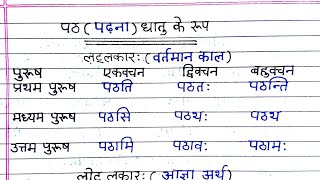 पठ (पढ़ना) धातु के रूप
लट्लकारः (वर्तमान काल)
पुरूष एकवचन द्विवचन बहुवचन
प्रथम पुरूष पठति पठतः पठन्ति
मध्यम पुरूष पठसि पठथः पठथ
उत्तम पुरूष पठामि पठावः पठामः
लोट् लकारः (आज्ञा अर्थ)